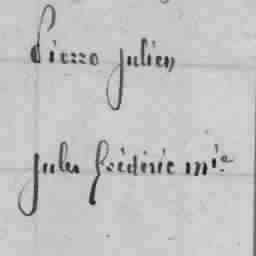 Pierre Julien
Jules Frédéric mie